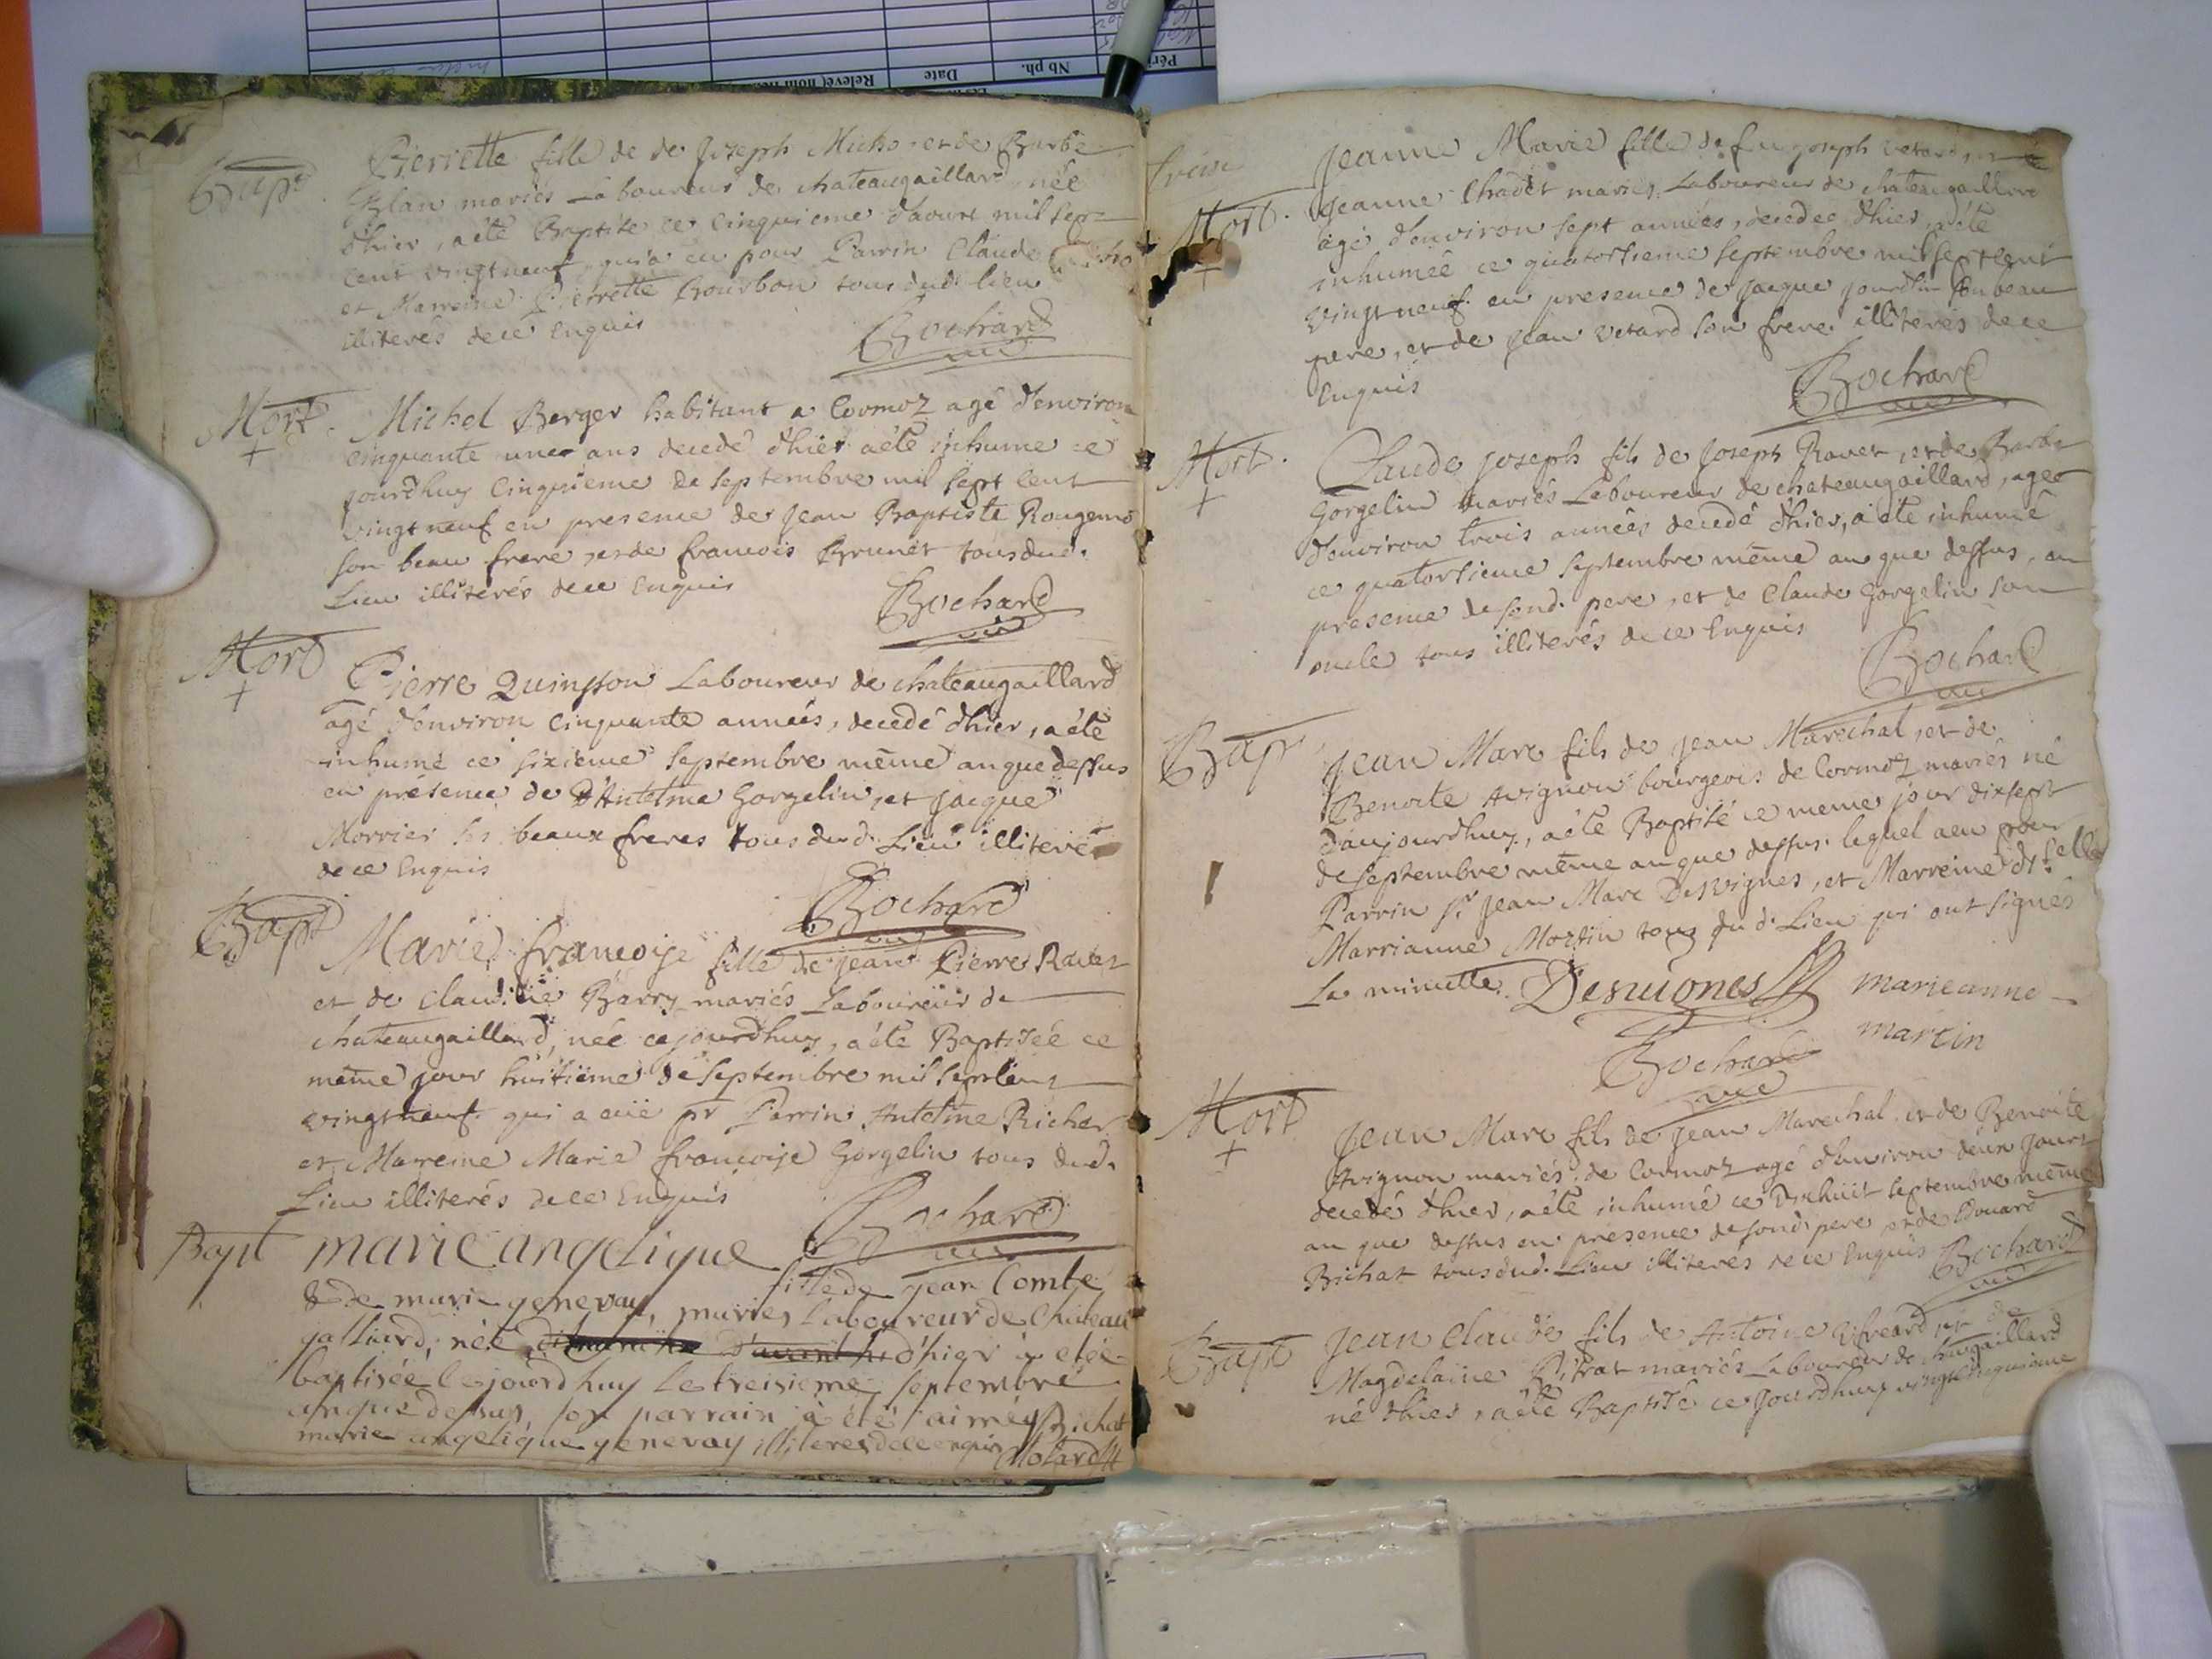 Bapt.
Pierrette fille de de Joseph Micho et de Barbe
Blan mariés Laboureur de chateaugaillard, née
d'hier, aété Baptisée ce cinquieme d'aoust mil sept
cent vingt neuf, qui a eu pour Parrin Claude
et Marreine Pierrette Bourbon tous dud. lieu
illiterés de ce Enquis
Bochard
Mort.
Michel Berger habitant a Cormoz agé d'environ
cinquante une ans decedé d'hier aété inhume ce
jourdhuy Cinquieme de septembre mil sept cent
vingt neuf en presence de Jean Baptiste Rougemo
son beau frere, et de francois Brunet tous dud.
Lieu illiterés de ce Enquis
Bochard
Mort
Pierre Quinsson Laboureur de chateaugaillard
agé d'environ cinquante années, decedé d'hier, aété
inhumé ce sixieme septembre même an que dessus
en présence de D'Antelme Gorgelin, et Jacque
Morrier ses beaux freres tous dud. Lieu illiteré
de ce Enquis
Bochard
Bapt
Marie francoise fille de jean Pierre Ravet
et de Claudine Barry mariés Laboureur de
chateaugaillard, née cejourdhuy, aété Baptisée ce
meme jour huitieme de septembre mil sept cent
vingt neuf. qui a eüe pr Parrin Antelme Richer
et Marreine Marie francoise Gorgelin tous dud.
Lieu illiterés de ce Enquis
Bochard
Bapt
marie angelique
fille de jean Comte
& de marie genevay, mariés laboureur de Chateau
gaillard, née d'hier a eté
baptisée lejourdhuy le treisieme septembre
an que dessus, son parrain à été aimé Bichat
marie angelique genevay illiteres de ce enquis Motard
treise
Mort.
Jeanne Marie fille de feu joseph vetard, et
Jeanne Chadet mariés Laboureur de chateaugaillard
agé d'environ sept années, decedee d'hier, aété
inhumée ce quatorsieme septembre mil sept cent
vingt neuf. en presence de jacque jourdhin son beau
pere, et de Jean vetard son frere illiterés de ce
Enquis
Bochard
Mort.
Claude joseph fils de Joseph Ravet, et de Barbe
Gorgelin mariés Laboureur de chateaugaillard, agee
d'environ trois années decedé d'hier, aété inhumé
ce quatorsieme septembre même an que dessus, en
presence de sond. pere, et de Claude Gorgelin son
oncle tous illiterés de ce Enquis
Bochard
Bapt
Jean Marc fils de jean Marechal, et de
Benoite Avignon bourgeois de Cormoz mariés né
d'aujourdhuy, aété Baptisé ce meme jour dixsept
de septembre même an que dessus. lequel a eu pour
Parrin Sr. Jean Marc Desvignes, et Marreine dlle
Marrianne Martin tous du d. Lieu qui ont signés
La minutte. Desvignes marieanne
martin
Bochard
Mort
Jean Marc fils de jean Marechal et de Benoite
Avignon mariés de Cormoz agé d'environ deux jours
decedé d'hier, aété inhumé ce Dixhuit septembre même
an que dessus en presence de sond. pere et de Edouard
Bichat tous dud. Lieu illiterés de ce Enquis Bochard
Bapt
Jean Claude fils de Antoine et de
Magdelaine Pitrat mariés Laboureur de chaugaillard
né d'hier, aété Baptisé ce jourdhuy vingt cinquieme